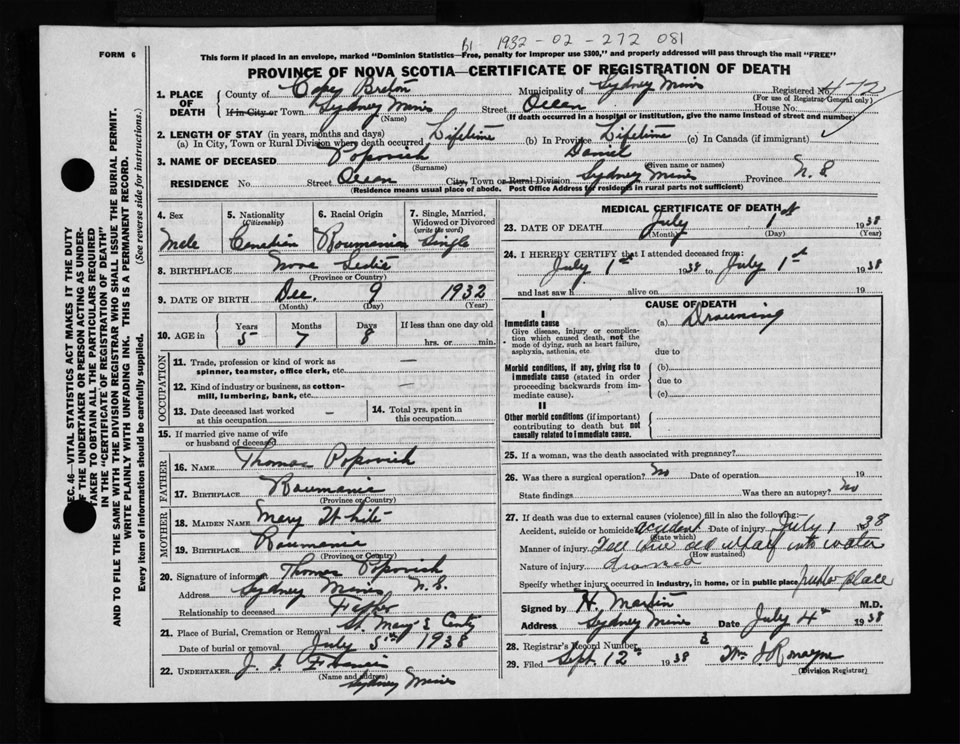 B1 1932 - 02 - 272 081
FORM 6
This form if placed in an envelope, marked "Dominion Statistics—Free, penalty for improper use $300," and properly addressed will pass through the mail "FREE"
PROVINCE OF NOVA SCOTIA—CERTIFICATE OF REGISTRATION OF DEATH
SEC. 46—VITAL STATISTICS ACT MAKES IT THE DUTY
OF THE UNDERTAKER OR PERSON ACTING AS UNDER-
TAKER TO OBTAIN ALL THE PARTICULARS REQUIRED
IN THE "CERTIFICATE OF REGISTRATION OF DEATH"
AND TO FILE THE SAME WITH THE DIVISION REGISTRAR WHO SHALL ISSUE THE BURIAL PERMIT.
WRITE PLAINLY WITH UNFADING INK. THIS IS A PERMANENT RECORD.
Every item of information should be carefully supplied. (See reverse side for instructions.)
1. PLACE OF DEATH County of Cape Breton Municipality of Sydney Mines Registered No.
(For use of Registrar-General only)
If in City or Town Sydney Mines Street Ocean House No.
(Name) (If death occurred in a hospital or institution, give the name instead of street and number)
2. LENGTH OF STAY (in years, months and days)
(a) In City, Town or Rural Division where death occurred Lifetime (b) In Province Lifetime (c) In Canada (if immigrant)
3. NAME OF DECEASED Popovich Daniel
(Surname) (Given name or names)
RESIDENCE No. Street Ocean City, Town or Rural Division Sydney Mines Province N. S
(Residence means usual place of abode. Post Office Address for residents in rural parts not sufficient)
4. Sex 5. Nationality (Citizenship) 6. Racial Origin 7. Single, Married, Widowed or Divorced (write the word)
Male Canadian Roumanian Single
8. BIRTHPLACE Nova Scotia
(Province or Country)
9. DATE OF BIRTH Dec. 9 1932
(Month) (Day) (Year)
10. AGE in Years Months Days If less than one day old
5 7 8 hrs. or min.
OCCUPATION
11. Trade, profession or kind of work as
spinner, teamster, office clerk, etc. —
12. Kind of industry or business, as cotton-
mill, lumbering, bank, etc. —
13. Date deceased last worked
at this occupation —
14. Total yrs. spent in
this occupation
15. If married give name of wife
or husband of deceased
FATHER
16. NAME Thomas Popovich
17. BIRTHPLACE Roumania
(Province or Country)
MOTHER
18. MAIDEN NAME Mary White
19. BIRTHPLACE Roumania
(Province or Country)
20. Signature of informant Thomas Popovich
Address Sydney Mines N. S.
Relationship to deceased Father
21. Place of Burial, Cremation or Removal St. Mary's
Date of burial or removal July 5th 1938
22. UNDERTAKER
(Name and address)
Sydney Mines
MEDICAL CERTIFICATE OF DEATH
23. DATE OF DEATH July 1st 1938
(Month) (Day) (Year)
24. I HEREBY CERTIFY that I attended deceased from:
July 1st 1938 to July 1st 1938
and last saw h alive on 19
CAUSE OF DEATH
I
Immediate cause (a) Drowning
Give disease, injury or complica-
tion which caused death, not the
mode of dying, such as heart failure,
asphyxia, asthenia, etc. due to
Morbid conditions, if any, giving rise to
immediate cause (stated in order
proceeding backwards from im-
mediate cause). (b)
due to
(c)
II
Other morbid conditions (if important)
contributing to death but not
causally related to immediate cause.
25. If a woman, was the death associated with pregnancy?
26. Was there a surgical operation? No Date of operation 19
State findings Was there an autopsy? No
27. If death was due to external causes (violence) fill in also the following:
Accident, suicide or homicide? accident Date of injury July 1 1938
(State which)
Manner of injury Fell over old wharf into water
(How sustained)
Nature of injury drowned
Specify whether injury occurred in industry, in home, or in public place public place
Signed by H. Martin M.D.
Address Sydney Mines Date July 4th 1938
28. Registrar's Record Number 3
29. Filed Sept. 12th 1938
(Division Registrar)